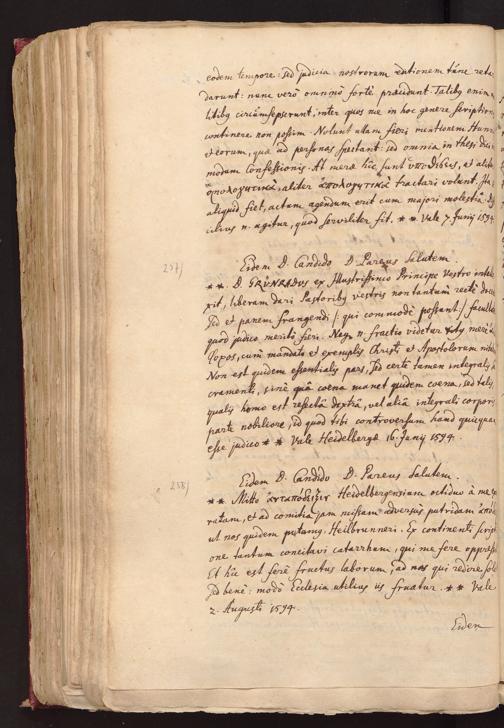 eodem tempore: sed judicia nostrorum editionem hanc retar
darunt: nunc verò omninò fortè praeludunt. Talibus enim
litibus circumsepserunt, inter quos me in hoc genere scriptionis
continere non possim. Nolunt ullam fieri mentionem Hunn
et eorum, quae ad personas spectant: sed omnia in thesi
modum Confessionis. At merae hîc sunt et aliter
ὁμολογητικὰ, aliter ἀπολογητικὰ tractari volunt. Ita
aliquid fiet, actum agendum erit cum majori molestia.
cilius n. agitur, quod serviliter fit. ** Vale 7 Junij 1594
257)
Eidem D. Candido D. Pareus Salutem.
** D. GRÜNRADUS ex Illustrissimo Principe Vestro intel
xit, liberum dari Pastoribus vestris non tantum rectè
sed et panem frangendi /: qui commodè possunt :/ facultas
quod judico meritò fieri. Nam n. fractio videtur
cum mandato et exemplis Christi et Apostolorum
Non est quidem essentialis pars, sed certè tamen integralis
cramenti, sine quâ coena manet quidem coena, sed talis
qualis homo est resectâ dextrâ, vel aliâ integrali corporis
parte nobiliore, id quod tibi controversum haud
esse judico ** Vale Heidelbergae 16 Junij 1594.
258)
Eidem D. Candido D. Pareus Salutem.
** Mitto ἀνταπόδειξιν Heidelbergensium octiduo à me
ratam, et ad comitia jam missam adversus putridam
ut nos quidem putamus, Heilbrunneri. Ex continenti scripti
one tantum concitavi catarrhum, qui me fere oppressit
Et hic est ferè fructus laborum, ad nos qui redire
sed benè: modò Ecclesia utilius iis fruatur. ** Vale
2. Augusti 1594.
Eidem